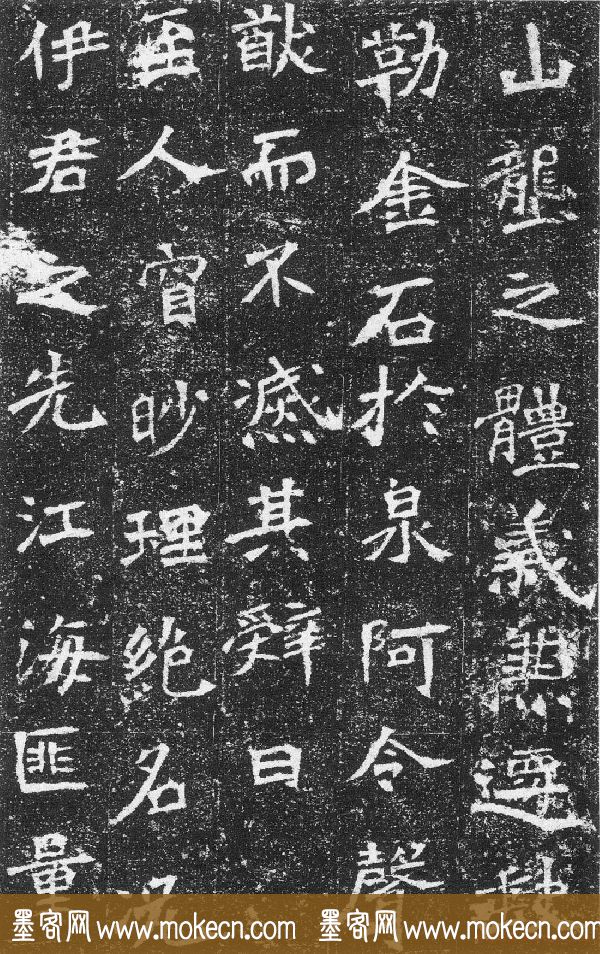 山壟之體義兼遵
勒金石於泉阿令聲
猷而不滅其辭曰
至人窅眇理絕名
伊君之先江海匪量
墨客网 www.mokecn.com 墨客网 www.mokecn.com